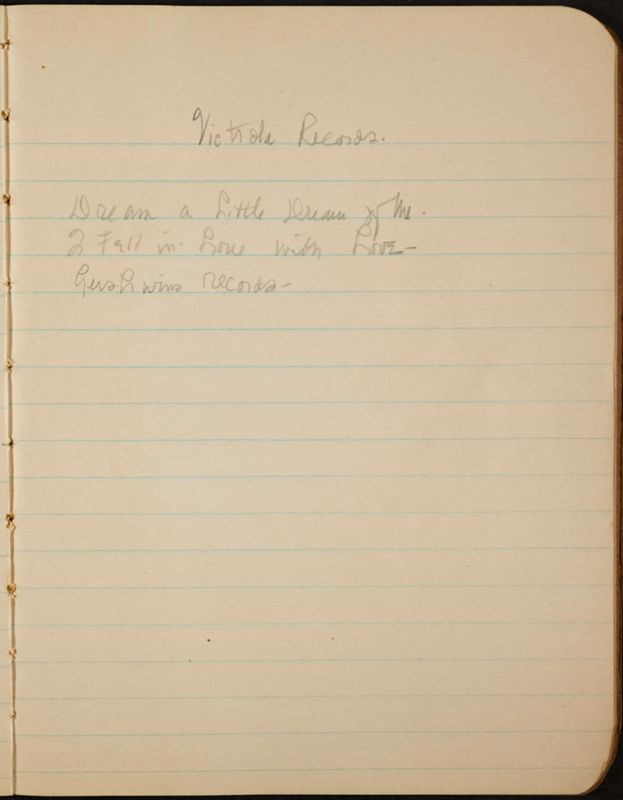 Victrola Records.
Dream a Little Dream of Me.
I Fall in Love with Love—
Gershwins records—